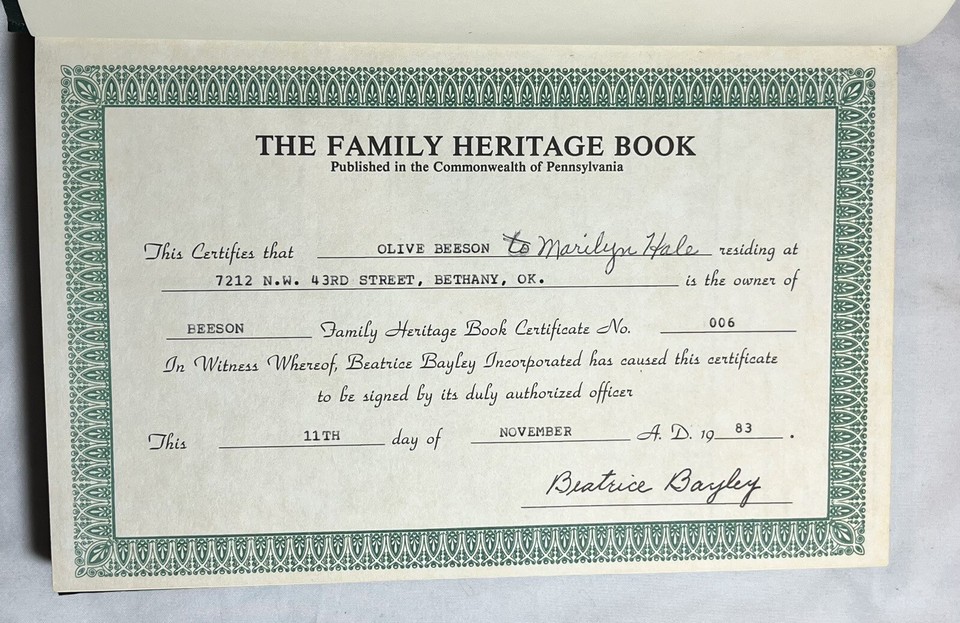 THE FAMILY HERITAGE BOOK
Published in the Commonwealth of Pennsylvania
This Certifies that OLIVE BEESON to Marilyn Hale residing at
7212 N.W. 43RD STREET, BETHANY, OK. is the owner of
BEESON Family Heritage Book Certificate No. 006
In Witness Whereof, Beatrice Bayley Incorporated has caused this certificate
to be signed by its duly authorized officer
This 11TH day of NOVEMBER A. D. 1983.
Beatrice Bayley